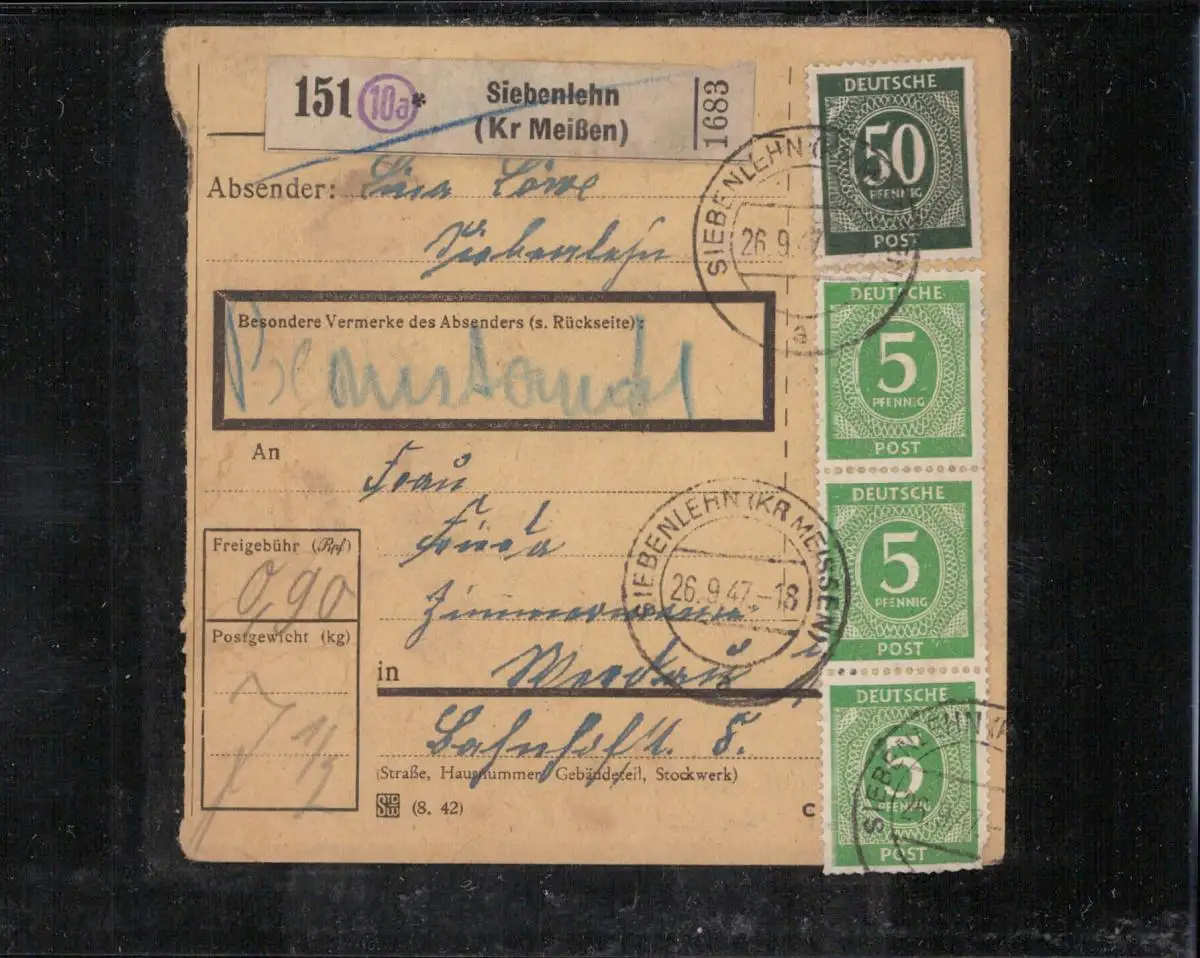 151 10a* Siebenlehn
(Kr Meißen)
1683
Absender: Lina Löwe
Siebenlehn
Besondere Vermerke des Absenders (s. Rückseite):
An Frau
Zimmermann
in Werdau
Bahnhofst. 5.
(Straße, Hausnummer, Gebäudeteil, Stockwerk)
Freigebühr (Rpf)
0,90
Postgewicht (kg)
7 1/2
(8. 42)
C
DEUTSCHE
50
PFENNIG
POST
DEUTSCHE
5
PFENNIG
POST
DEUTSCHE
5
PFENNIG
POST
DEUTSCHE
5
PFENNIG
POST
SIEBENLEHN
26.9.47
a
SIEBENLEHN (KR MEISSEN)
26.9.47-18